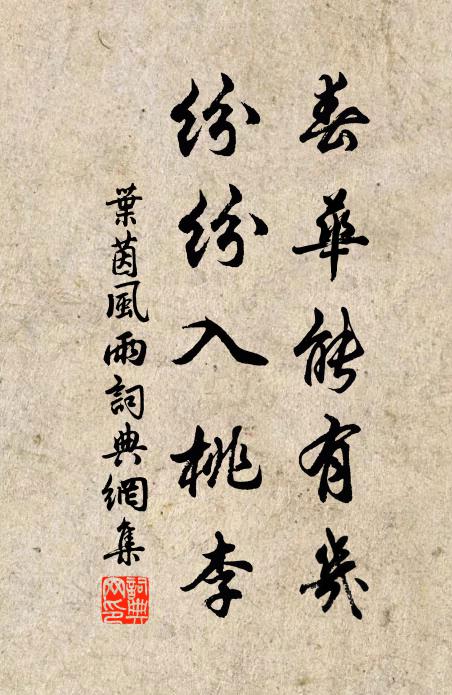 春華能有幾
紛紛入桃李
葉茵風雨詞典網集
詞典網印